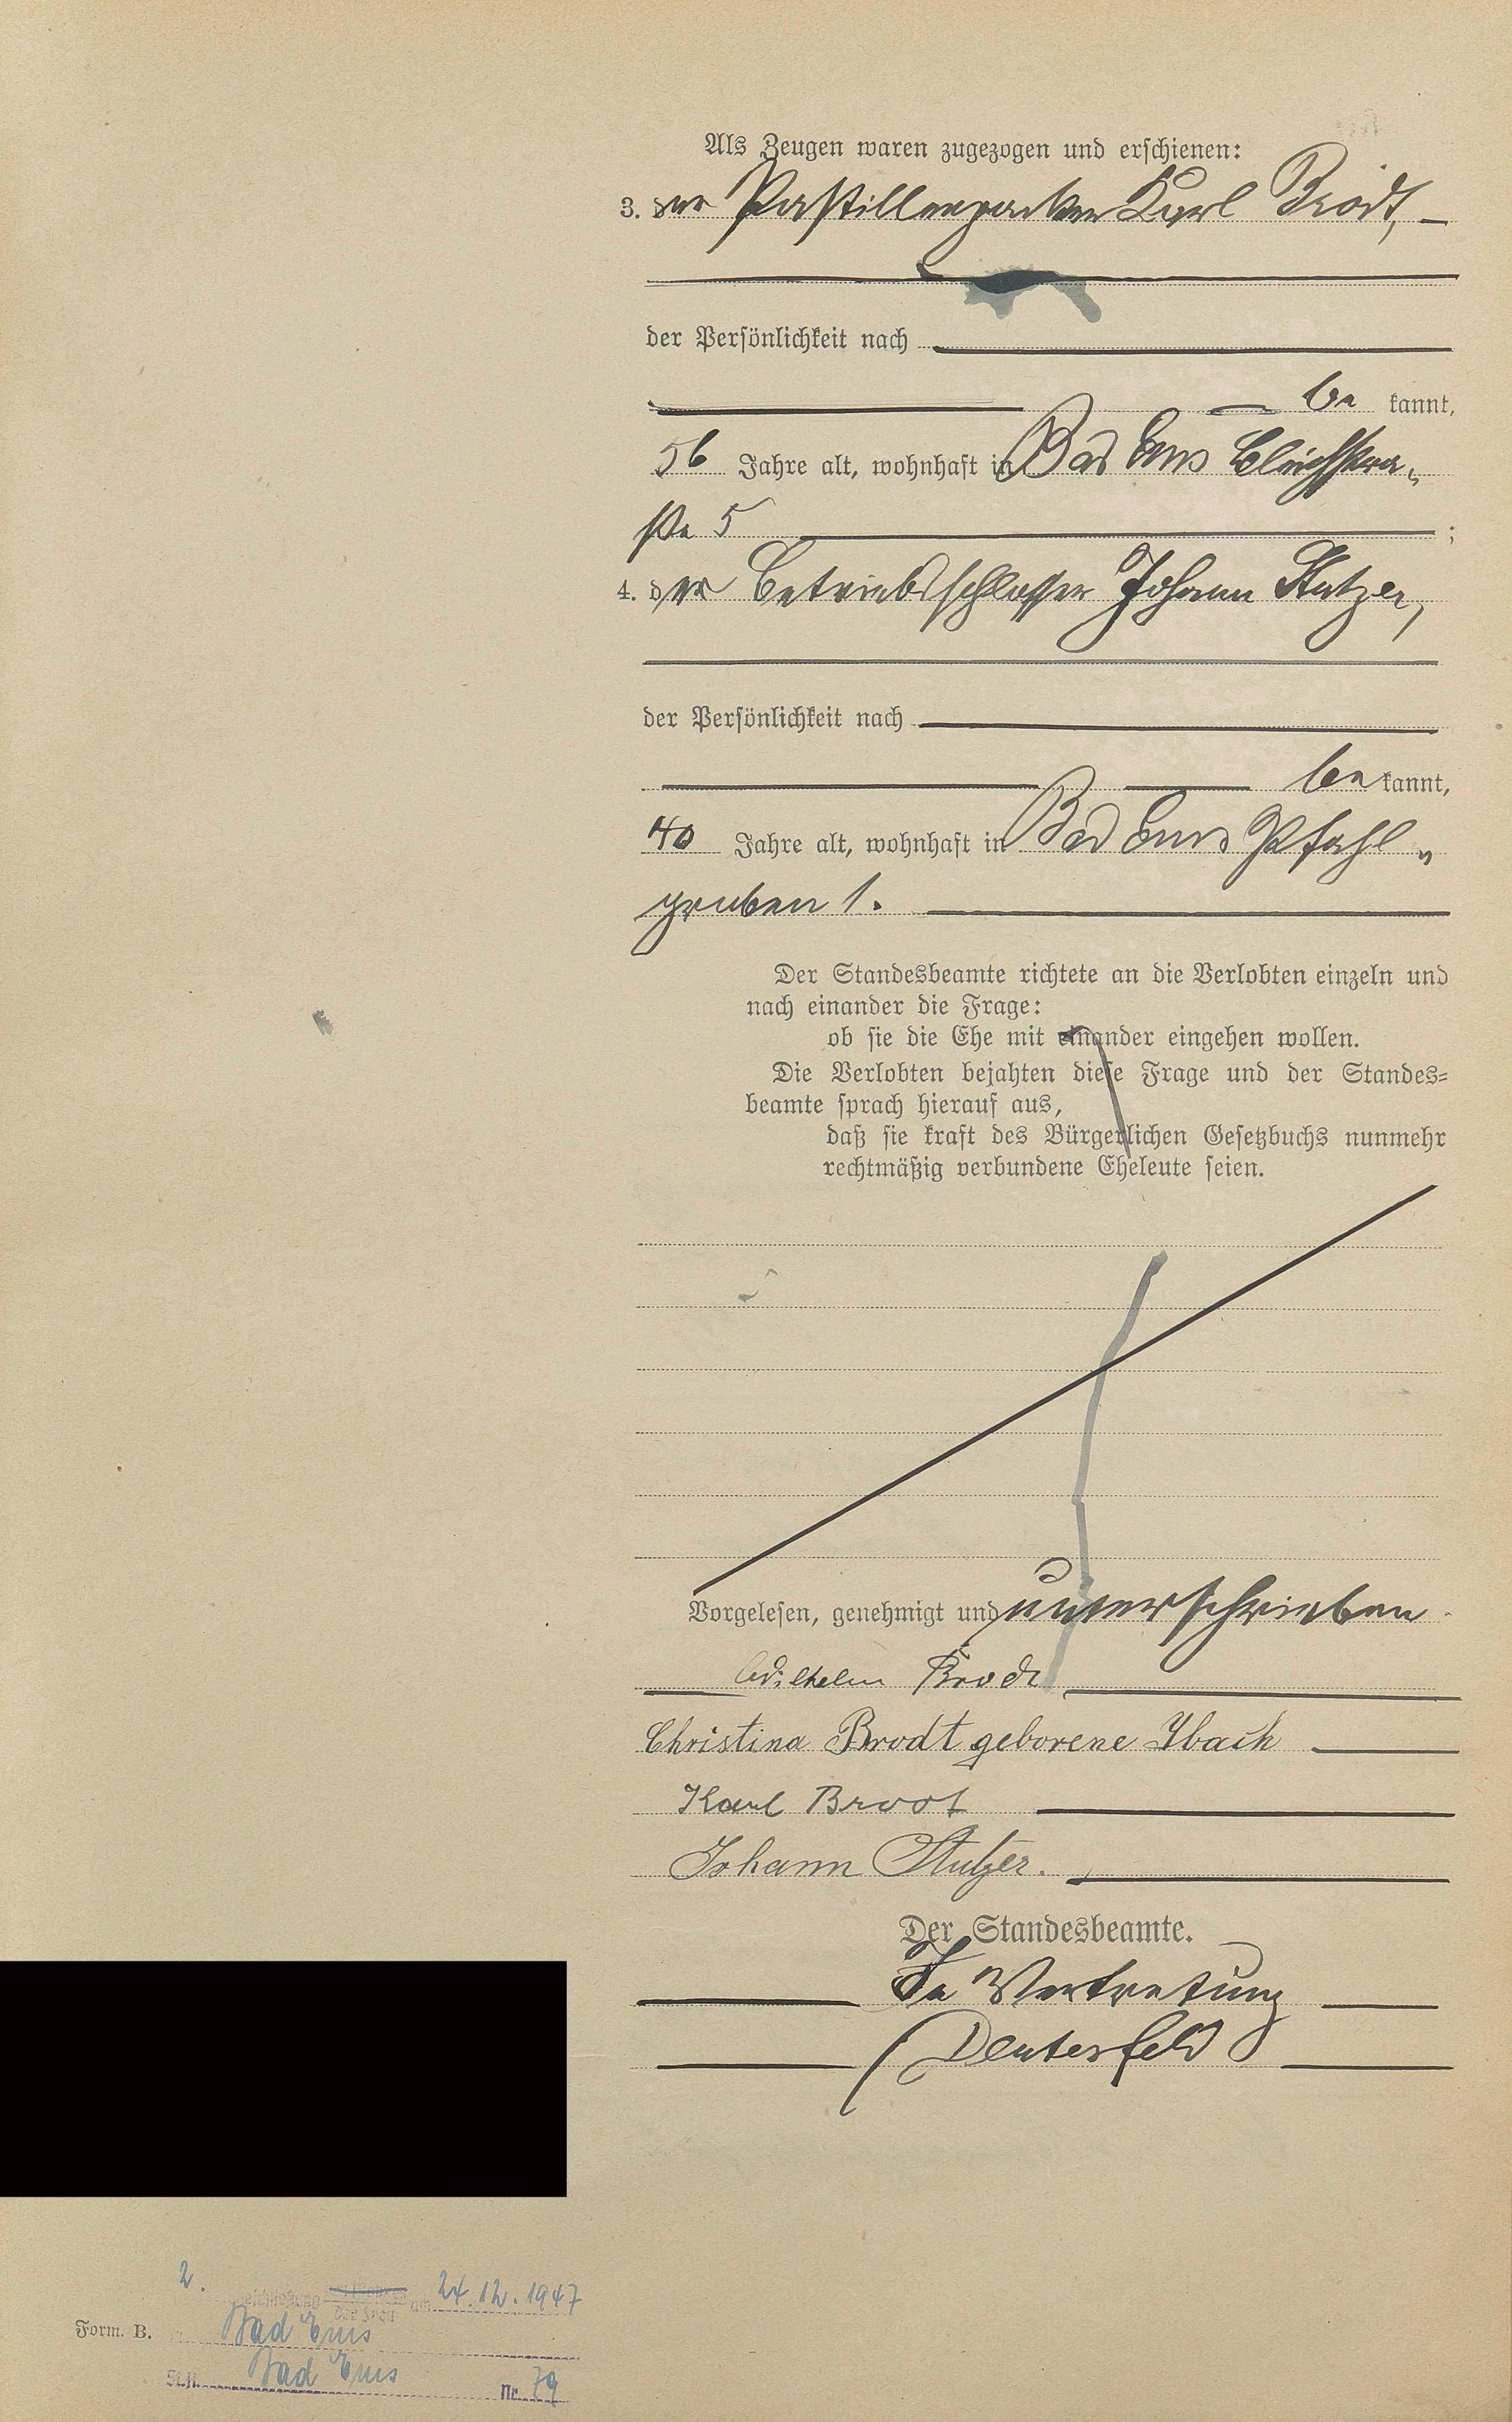 Als Zeugen waren zugezogen und erschienen:
3. der Pastillenpacker Karl Brodt, —
der Persönlichkeit nach
— be kannt,
56 Jahre alt, wohnhaft in Bad Ems Bleichstra-
ße 5 ;
4. der Betriebsschlosser Johann Stutzer,
der Persönlichkeit nach
be kannt,
40 Jahre alt, wohnhaft in Bad Ems Pfahl-
graben 1.
Der Standesbeamte richtete an die Verlobten einzeln und
nach einander die Frage:
ob sie die Ehe mit einander eingehen wollen.
Die Verlobten bejahten diese Frage und der Standes=
beamte sprach hierauf aus,
daß sie kraft des Bürgerlichen Gesetzbuchs nunmehr
rechtmäßig verbundene Eheleute seien.
Vorgelesen, genehmigt und unterschrieben
Wilhelm Brodt
Christina Brodt geborene Ybach
Karl Brodt
Johann Stutzer.
Der Standesbeamte.
In Vertretung
2. der Frau am 24.12.1947
Form. B. Bad Ems
St.A. Bad Ems Nr. 79